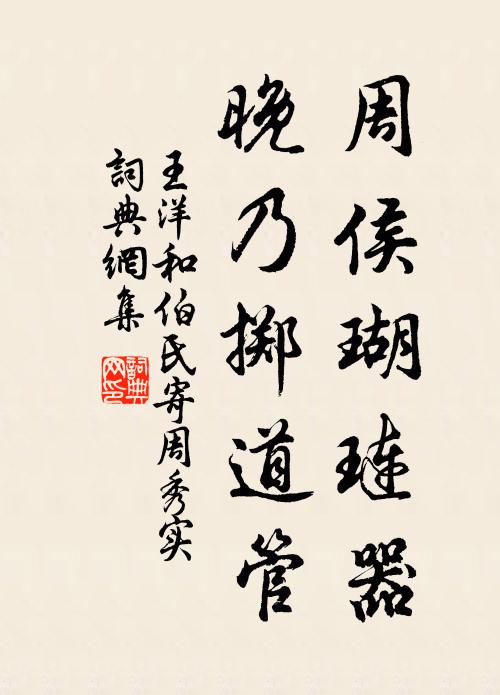 周侯瑚琏器
晚乃掷道管
王洋和伯民寄周秀实
詞典網集
詞典网印